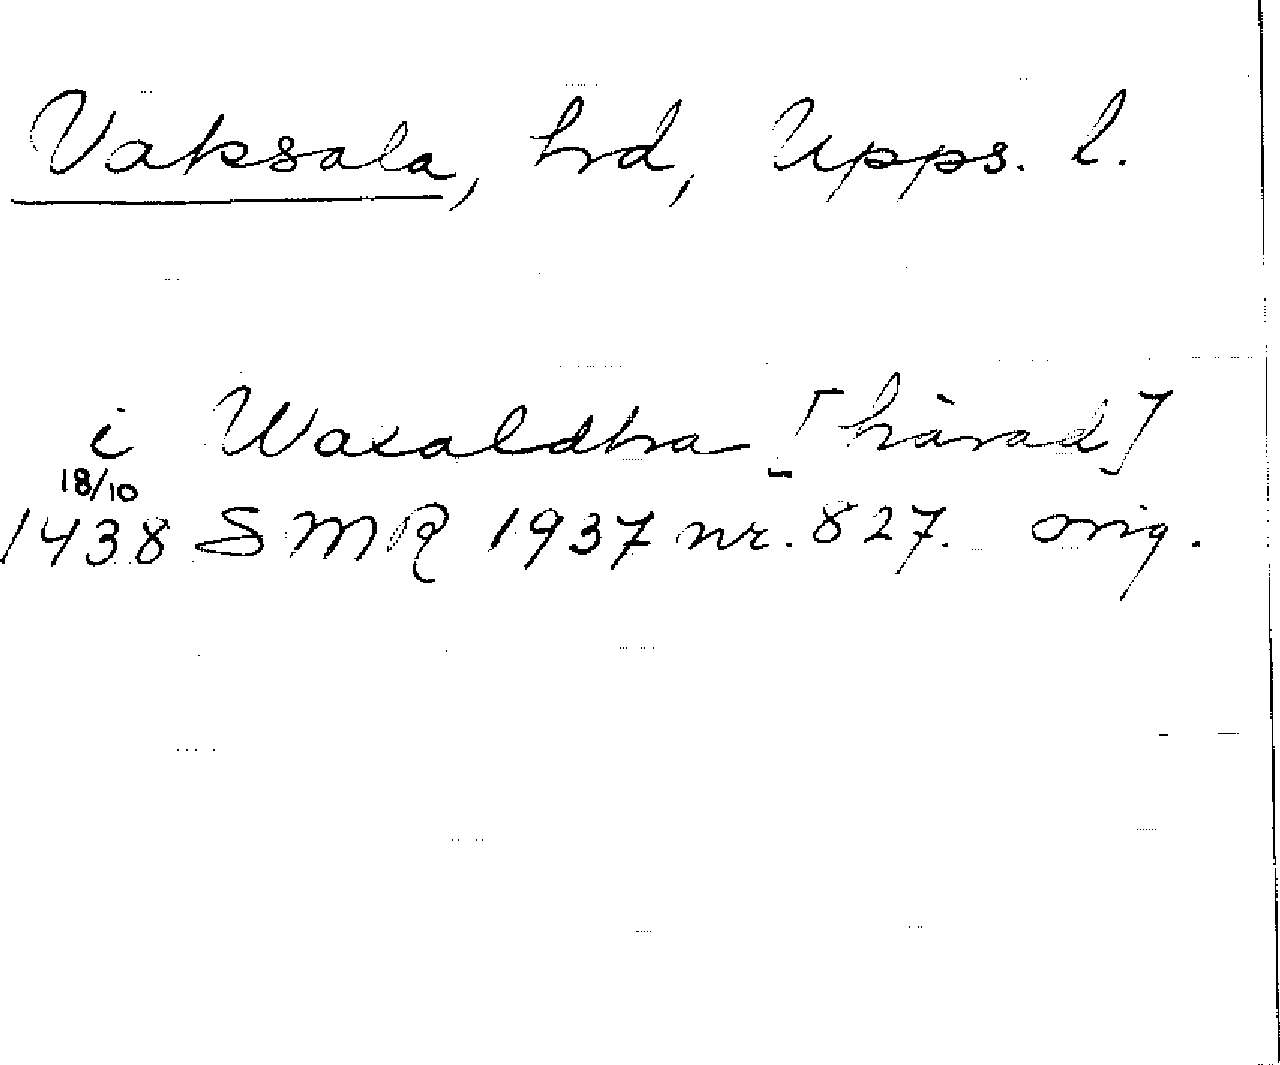 Vaksala, hrd, Upps. l.
i Waxaldhra [härad]
18/10
1438 SMR 1937 nr. 827. orig.